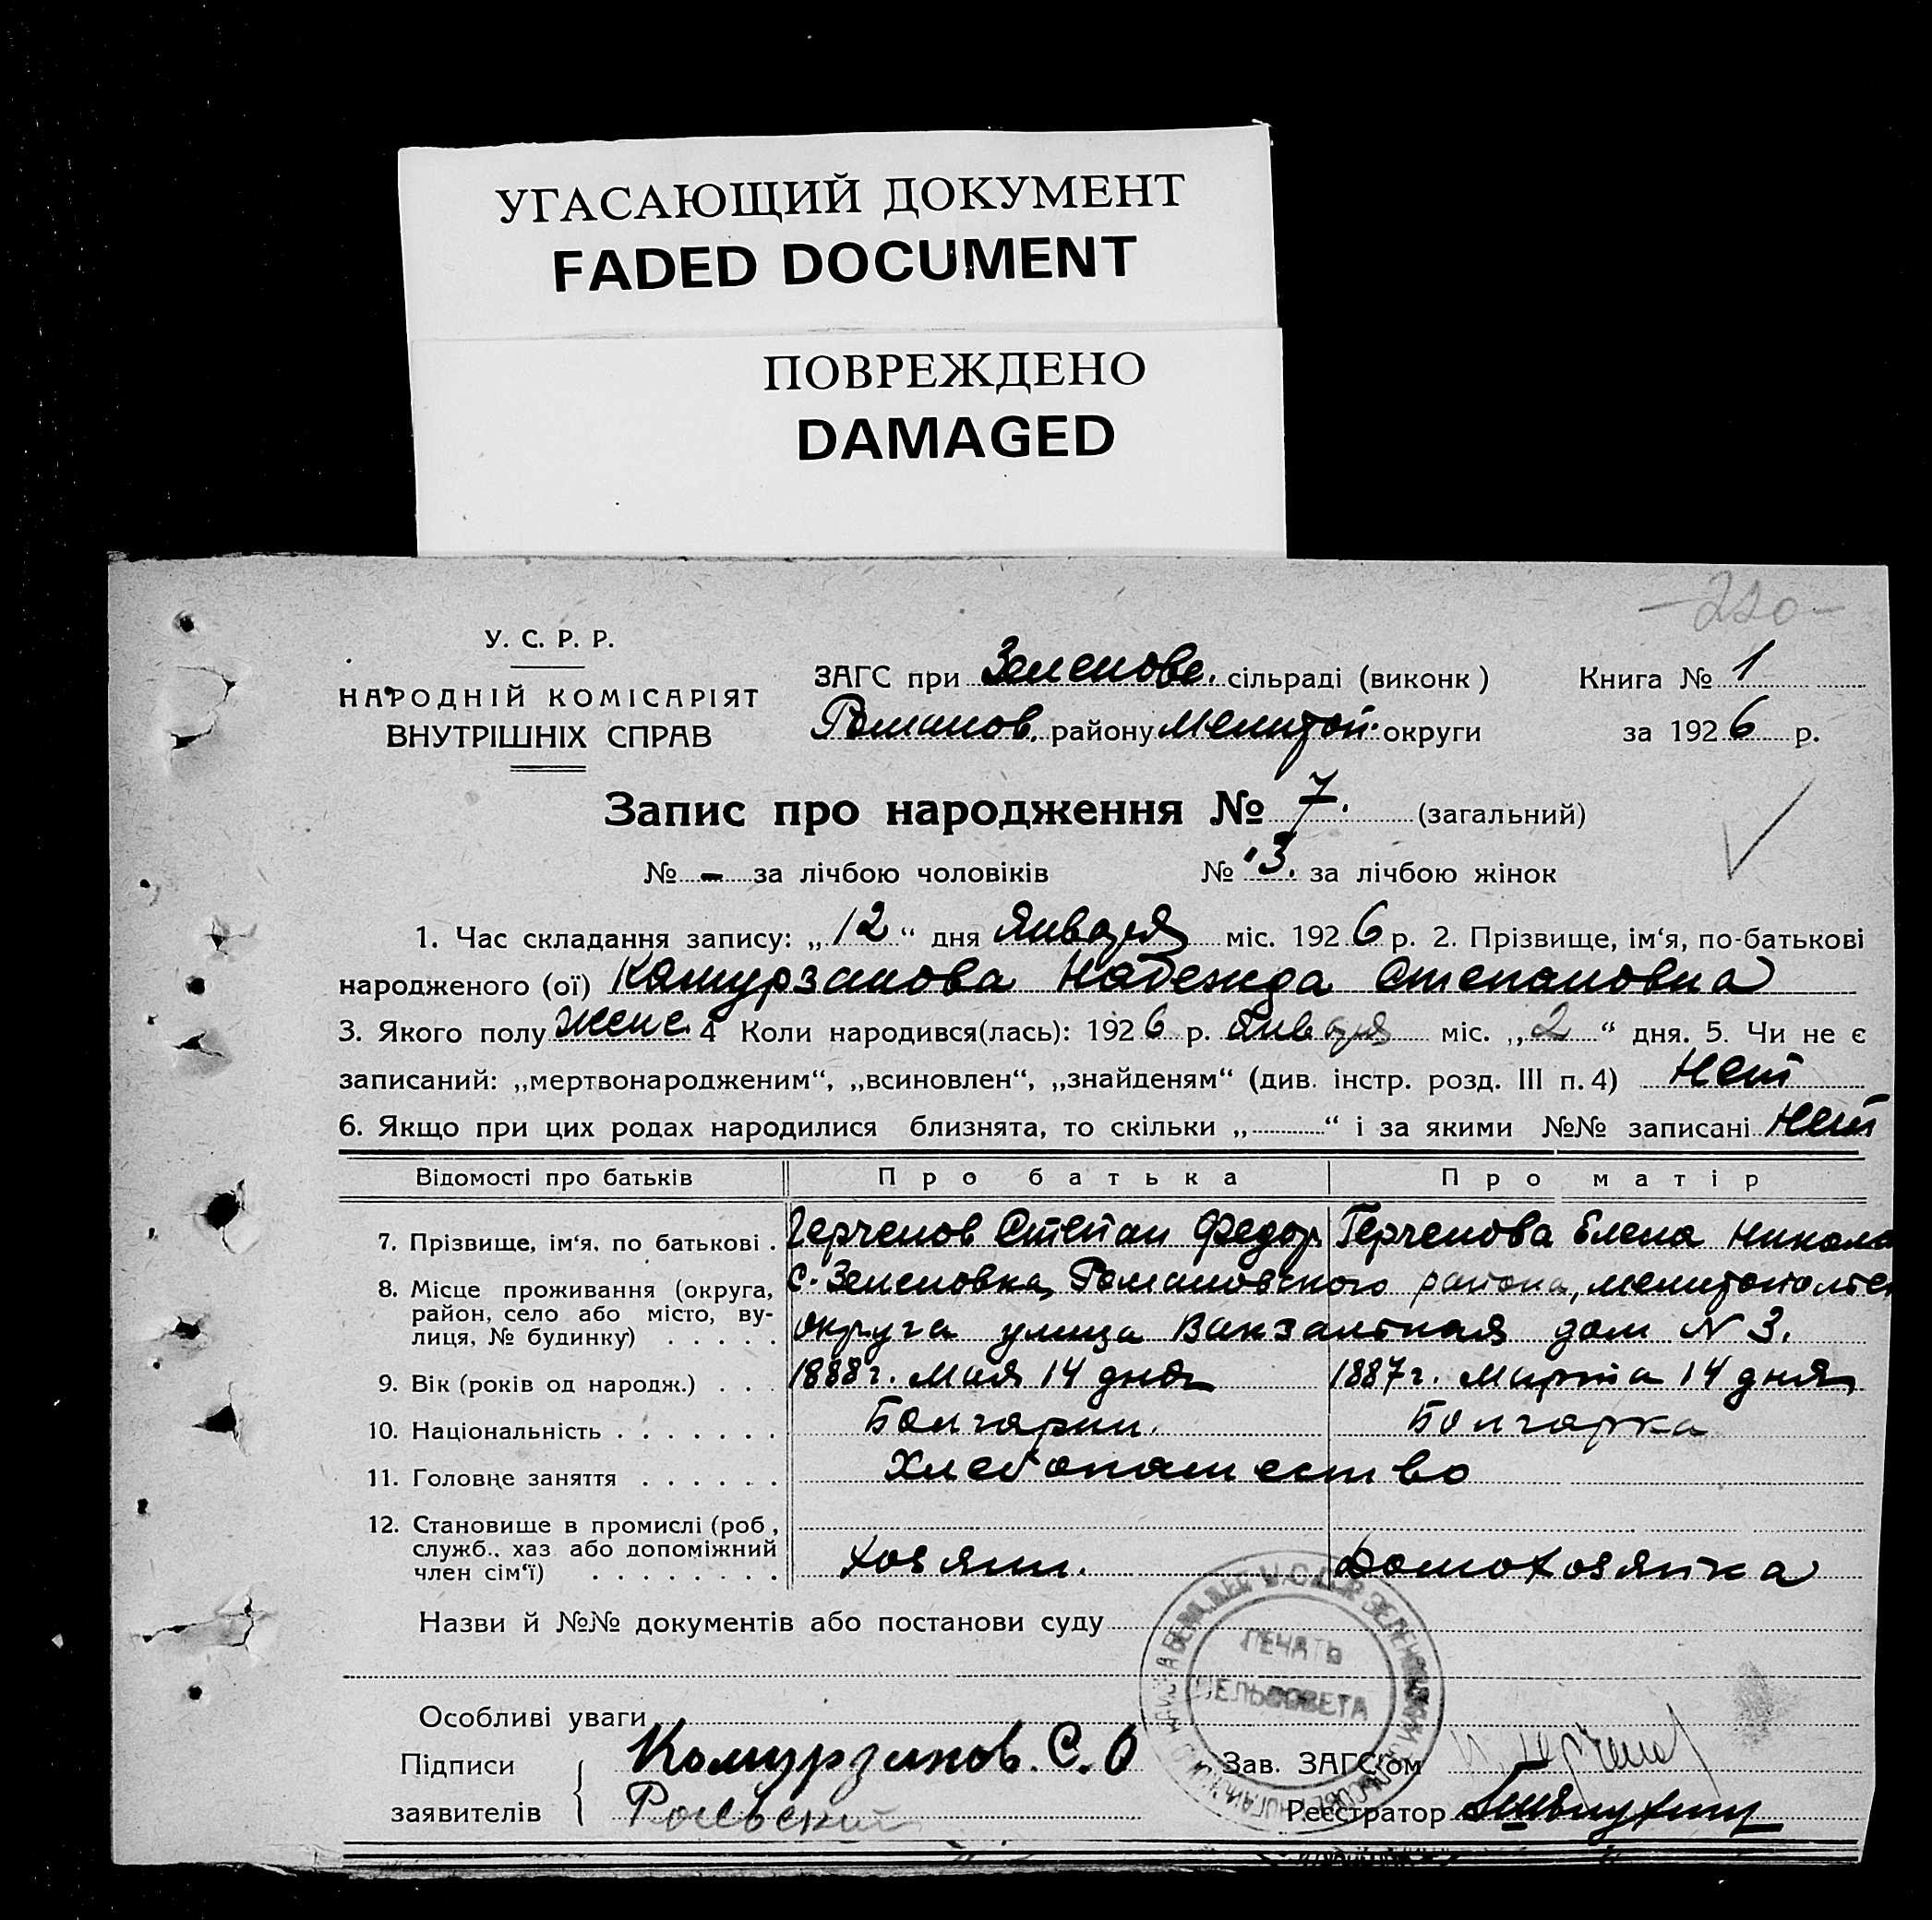 УГАСАЮЩИЙ ДОКУМЕНТ
FADED DOCUMENT
ПОВРЕЖДЕНО
DAMAGED
-220-
У. С. Р. Р.
НАРОДНІЙ КОМІСАРІЯТ
ВНУТРІШНІХ СПРАВ
ЗАГС при Зеленове. сільраді (виконк) Книга № 1
Романов. району Мелитоп. округи за 1926 р.
Запис про народження № 7. (загальний)
№ - за лічбою чоловіків № 3. за лічбою жінок
1. Час складання запису: „12“ дня Января міс. 1926 р. 2. Прізвище, ім‘я, по-батькові
народженого (ої) Камурзакова Надежда Степановна
3. Якого полу Женс. 4 Коли народився(лась): 1926 р. Января міс. „2“ дня. 5. Чи не є
записаний: „мертвонародженим“, „всиновлен“, „знайденям“ (див. інстр. розд. III п. 4) Нет
6. Якщо при цих родах народилися близнята, то скільки „ “ і за якими №№ записані Нет
Відомості про батьків Про батька Про матір
7. Прізвище, ім‘я, по батькові . Герченов Степан Федор. Герченова Елена Никола
8. Місце проживання (округа, район, село або місто, вулиця, № будинку) с. Зеленовка, Романовского района, Мелитопольск
округа улица Вокзальная дом N 3.
9. Вік (років од народж.) . . . 1888 г. Мая 14 дня 1887 г. Марта 14 дня
10. Національність . . . . . . . Болгарин. Болгарка
11. Головне заняття . . . . . . Хлебопашество
12. Становище в промислі (роб., служб., хаз або допоміжний член сім‘ї) . . . . . . . . Хозяин. Домохозяйка
Назви й №№ документів або постанови суду
ПЕЧАТЬ
СЕЛЬСОВЕТА
Особливі уваги
Підписи Комурзаков. С. Ф Зав. ЗАГС‘ом
заявителів Реєстратор